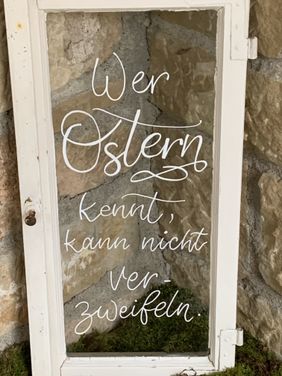 Wer
Ostern
kennt,
kann nicht
ver-
zweifeln.